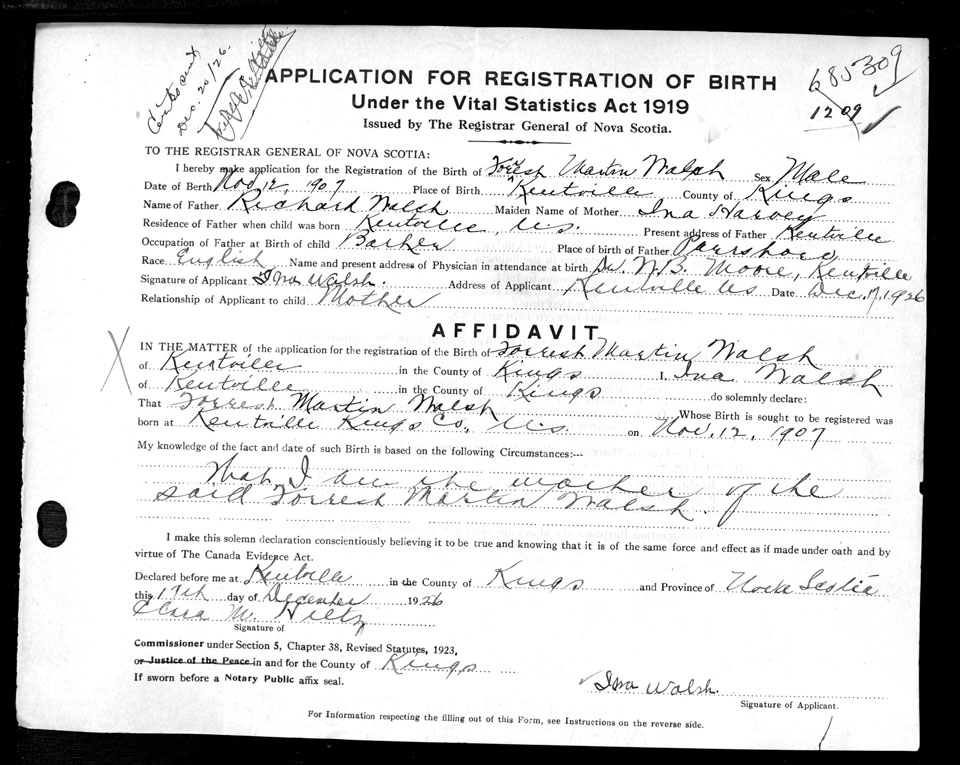 Certs sent
Dec. 20/26.
685309
1209
APPLICATION FOR REGISTRATION OF BIRTH
Under the Vital Statistics Act 1919
Issued by The Registrar General of Nova Scotia.
TO THE REGISTRAR GENERAL OF NOVA SCOTIA:
I hereby make application for the Registration of the Birth of Forrest Martin Walsh Sex Male
Date of Berth Nov 12, 1907 Place of Birth Kentville County of Kings
Name of Father Richard Walsh Maiden Name of Mother Ina Harvey
Residence of Father when child was born Kentville, N.S. Present address of Father Kentville
Occupation of Father at Birth of child Place of birth of Father Parrsboro
Race English Name and present address of Physician in attendance at birth Dr. Moore, Kentville
Signature of Applicant Ina Walsh. Address of Applicant Kentville N.S Date Dec. 17, 1926
Relationship of Applicant to child Mother
AFFIDAVIT
IN THE MATTER of the application for the registration of the Birth of Forrest Martin Walsh
of Kentville in the County of Kings I, Ina Walsh
of Kentville in the County of Kings do solemnly declare:
That Forrest Martin Walsh Whose Birth is sought to be registered was
born at Kentville Kings Co, N.S. on Nov. 12, 1907
My knowledge of the fact and date of such Birth is based on the following Circumstances:--
That I am the mother of the
said Forrest Martin Walsh.
I make this solemn declaration conscientiously believing it to be true and knowing that it is of the same force and effect as if made under oath and by
virtue of The Canada Evidence Act.
Declared before me at Kentville in the County of Kings and Province of Nova Scotia
this 17th day of December 1926
Clara M. Hiltz
Signature of
Commissioner under Section 5, Chapter 38, Revised Statutes, 1923,
or Justice of the Peace in and for the County of Kings
If sworn before a Notary Public affix seal.
Ina Walsh.
Signature of Applicant.
For Information respecting the filling out of this Form, see Instructions on the reverse side.